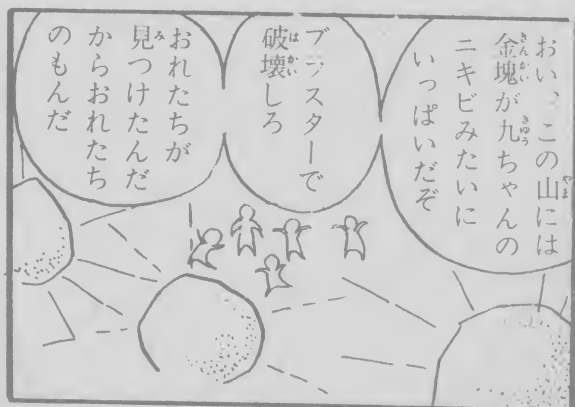 おい、この山には
金塊が九ちゃんの
ニキビみたいに
いっぱいだぞ
ブラスターで
破壊しろ
おれたちが
見つけたんだ
からおれたち
のもんだ